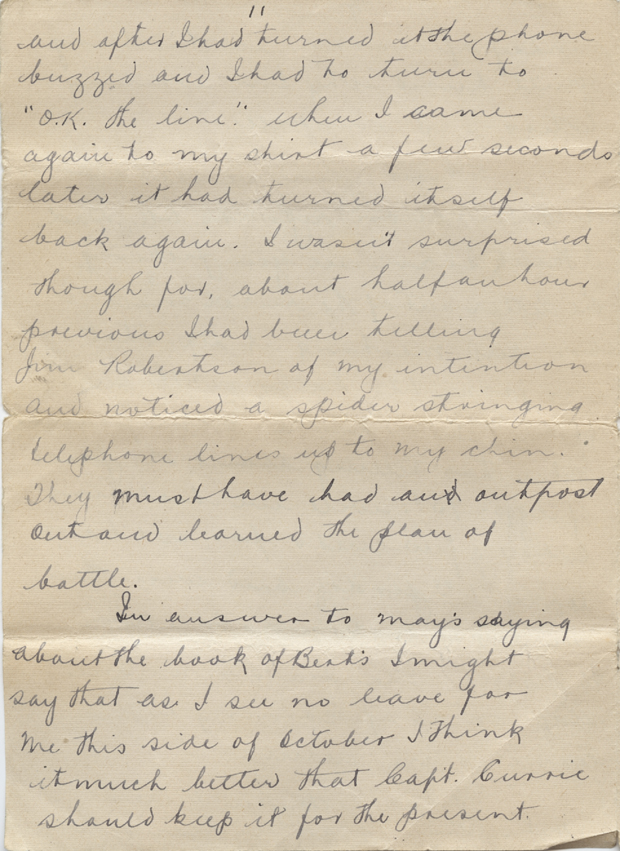 11
and after I had turned it the phone
buzzed and I had to turn to
"O.K. the line". when I came
again to my shirt a few seconds
later it had turned itself
back again. I wasn't surprised
though for, about half an hour
previous I had been telling
Jim Robertson of my intention
and noticed a spider stringing
telephone lines up to my chin.
They must have had an outpost
out and learned the plan of
battle.
In answer to May's saying
about the book of Bert's I might
say that as I see no leave for
me this side of October I think
it much better that Capt. Currie
should keep it for the present.